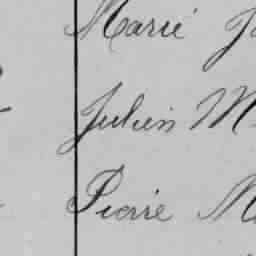 Marie J
Julien M
Pierre M